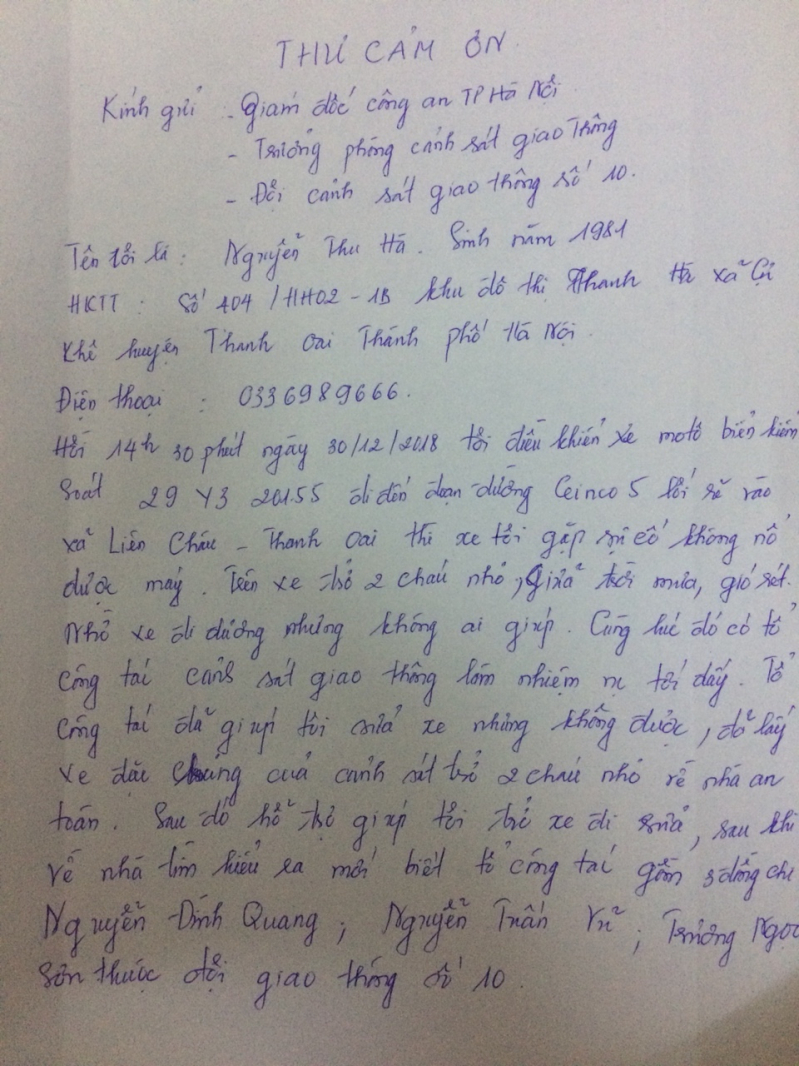 THƯ CẢM ƠN
Kính gửi - Giám đốc công an TP Hà Nội
- Trưởng phòng cảnh sát giao Thông
- Đội cảnh sát giao thông số 10.
Tên tôi là : Nguyễn Thu Hà . Sinh năm 1981
HKTT : Số 404 / HH02 - 1B khu đô thị Thanh Hà xã Cự
Khê huyện Thanh Oai Thành phố Hà Nội .
Điện thoại : 0336989666.
Hồi 14h 30 phút ngày 30/12/2018 tôi điều khiển xe moto biển kiểm
Soát 29 Y3 20155 đi đến đoạn đường Ceinco 5 lối rẽ vào
xã Liên Châu - Thanh Oai thì xe tôi gặp sự cố không nổ
được máy . Trên xe trở 2 cháu nhỏ , giữa trời mưa, gió rét.
Nhỡ xe đi đường nhưng không ai giúp . Cùng lúc đó có tổ
công tác cảnh sát giao thông làm nhiệm vụ tới đấy . Tổ
công tác đã giúp tôi sửa xe nhưng không được , đã lấy
xe đặc chủng của cảnh sát trở 2 cháu nhỏ về nhà an
toàn . Sau đó hỗ trợ giúp tôi trở xe đi sửa , sau khi
về nhà tìm hiểu ra mới biết tổ công tác gồm 3 đồng chí
Nguyễn Đình Quang ; Nguyễn Tuấn Vũ ; Trương Ngọc
Sơn thuộc đội giao thông số 10 .